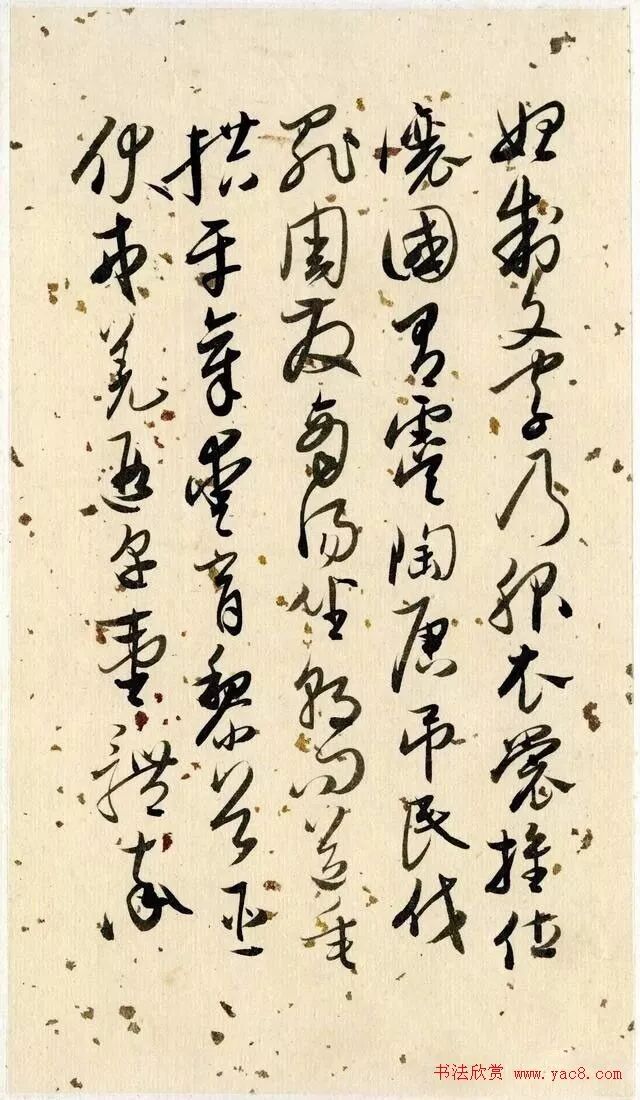 始制文字乃服衣裳推位
讓國有虞陶唐吊民伐
罪周發殷湯坐朝問道垂
拱平章愛育黎首臣
伏戎羌遐邇壹體率
书法欣赏 www.yac8.com